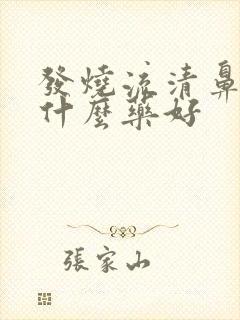 發燒流清鼻
什麼藥好
張家山